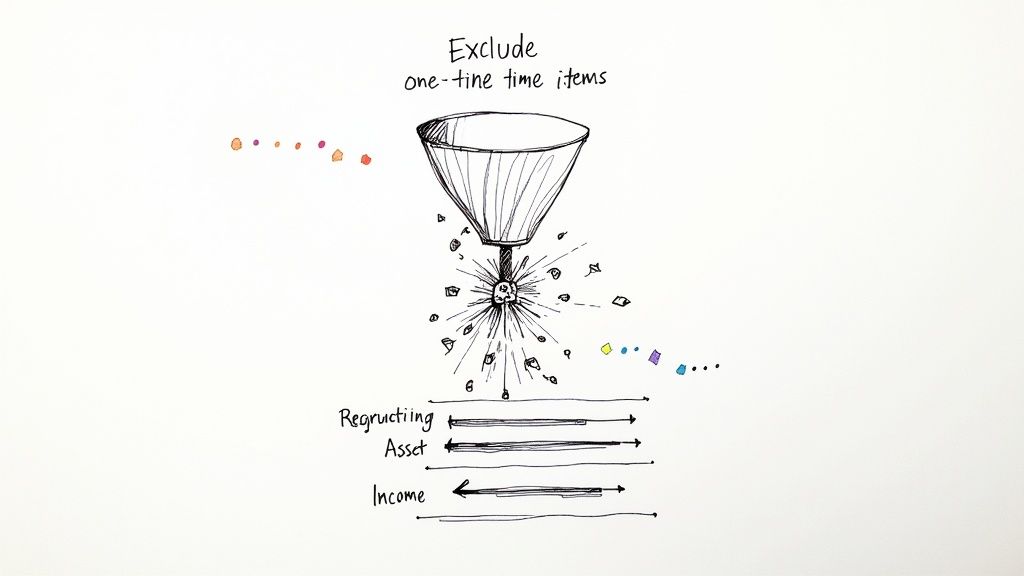 Exclude
one-tine time items
Regructiing
Asset
Income